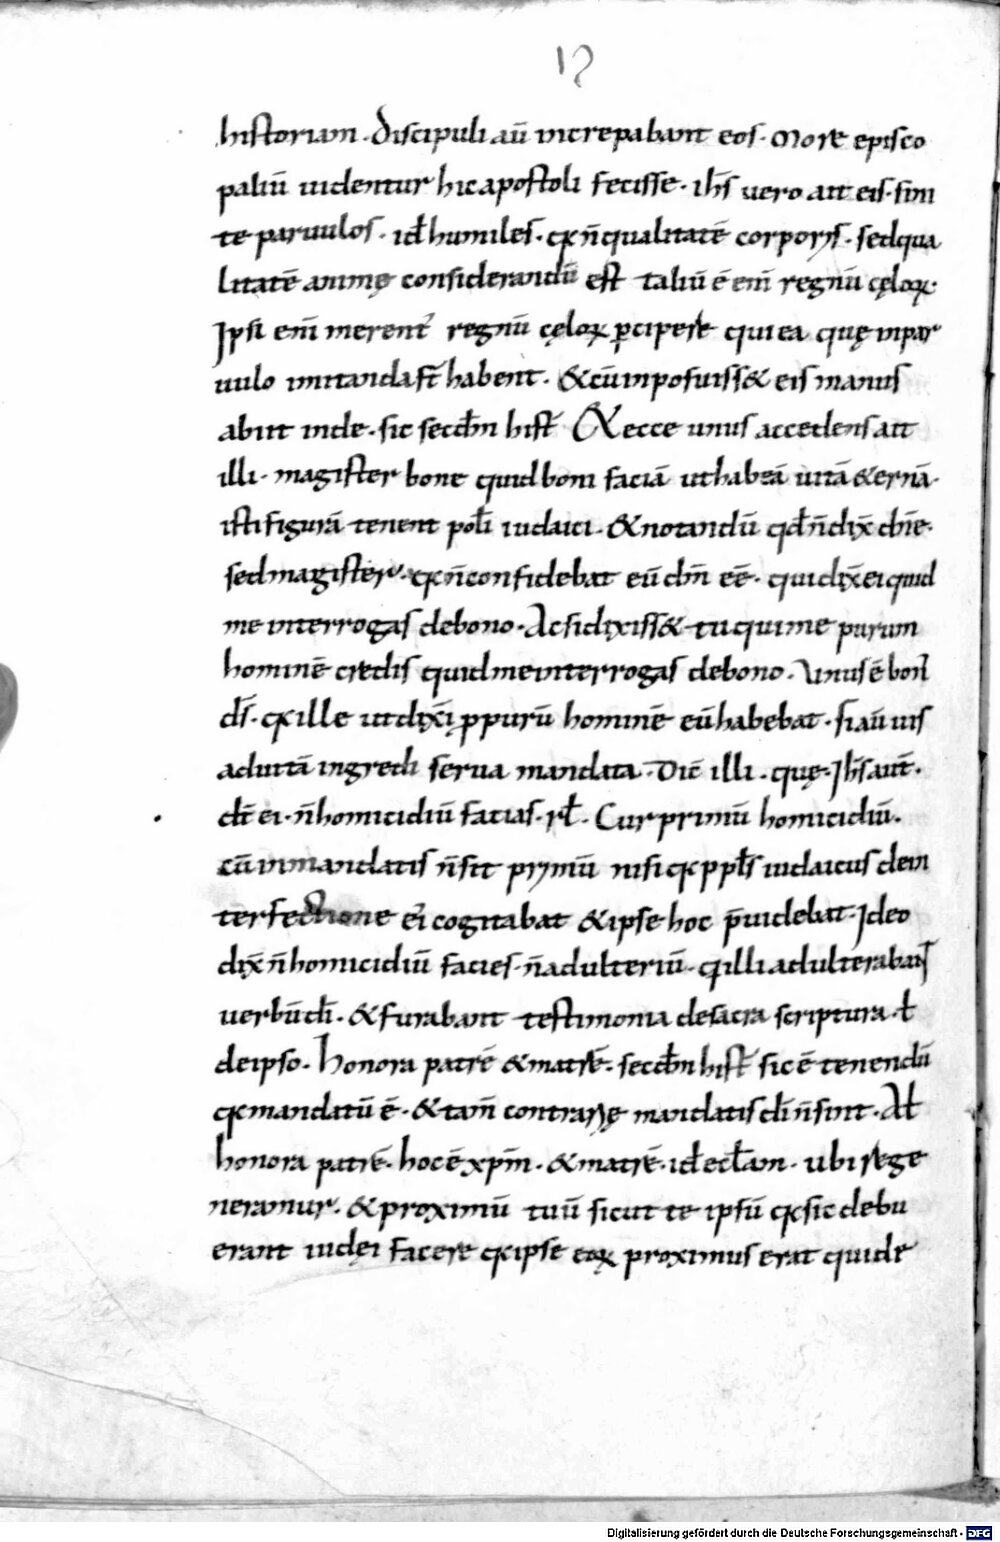 12
historiam. Discipuli aū increpabant eos. More episco
paliū uidentur hic apostoli fecisse. ihs̄ uero ait eis. sini
te paruulos. id̄ humiles. qꝛ n̄ qualitatē corporis. sed qua
litatē animę considerandū est taliū ē enī regnū cęloꝝ.
Ipsi enī merent᷑ regnū cęloꝝ ꝑcipere qui ea quę in par
uulo imitanda st̄ habent. & cū inposuiss& eis manus
abiit inde. sic secd̄m hist̄ & ecce unus accedens ait
illi. magister bone quid boni faciā ut habeā uitā &ernā.
isti figurā tenent pop̄li iudaici. & notandū qd̄ n̄ dix̄ dn̄e.
sed magister. qꝛ n̄ confidebat eū dn̄m eē. qui dix̄ ei quid
me interrogas de bono. Ac si dixiss& tu qui me purum
hominē credis quid me interrogas de bono. Unus ē bon᷑
ds̄. qꝛ ille ut dixi ꝓpt purū hominē eū habebat. si aū uis
ad uitā ingredi serua mandata. Dic̄ illi. quę. Ihs̄ aut̄.
dt̄ ei. n̄ homicidiū facias. rl̄. Cur primū homicidiū.
cū in mandatis n̄ sit prymū nisi qꝛ ppl̄s iudaicus de in
terfectione ei᷑ cogitabat & ipse hoc p̄uidebat. Ideo
dix̄ n̄ homicidiū facies. n̄ adulteriū. q̄ illi adulterabant
uerbū dī. & furabant testimonia de sacra scriptura. ł
de ipso. Honora patrē & matrē. secd̄m hist̄ sic ē tenendū
qꝛ mandatū ē. & tam̄ contrarię mandatis dī n̄ sunt. Al̄
honora patrē. hoc ē xp̄m. & matrē. id̄ eccl̄am. ubi rege
neramur. & proximū tuū sicut te ipsū qꝛ sic debu
erant iudęi facere qꝛ ipse eoꝝ proximus erat qui de
Digitalisierung gefördert durch die Deutsche Forschungsgemeinschaft - DFG